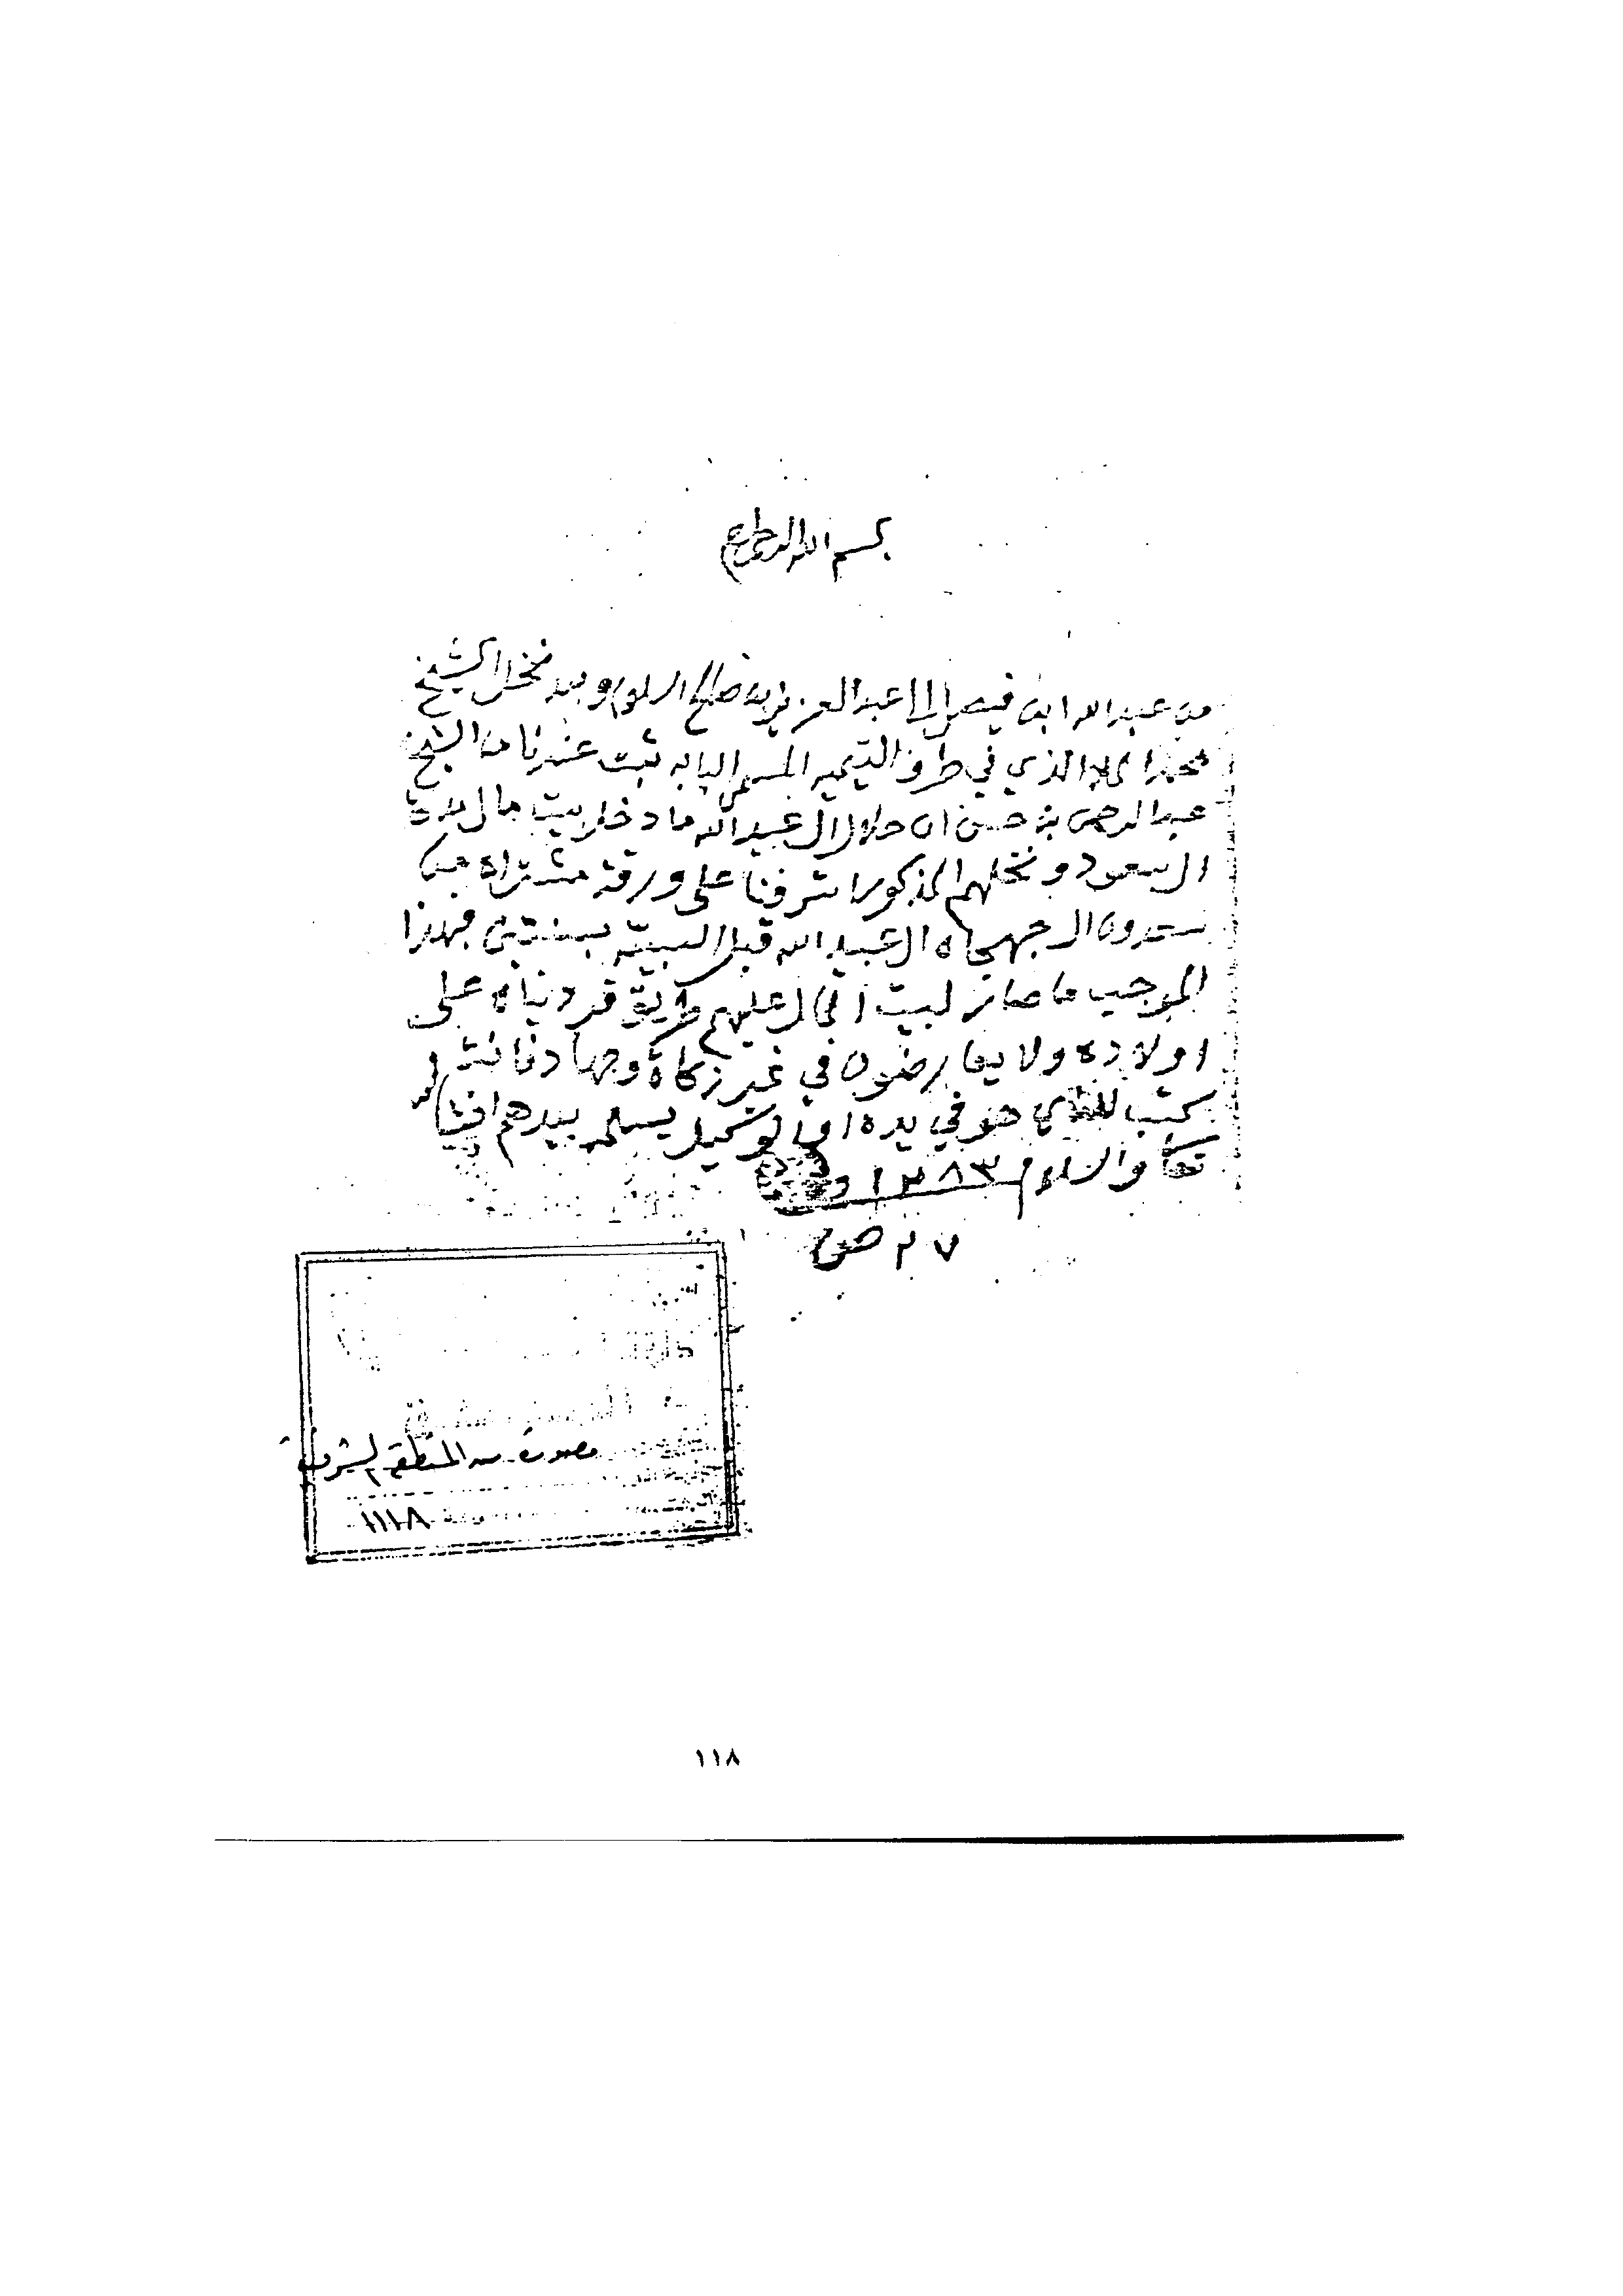 بسم الله الرحمن الرحيم
من عبدالله ابن فيصل الى عبدالعزيز بن صالح السلام وبعد نخل الشيخ
محمد الملا الذي في طرف التيميه المسمى ثبت عندنا من الشيخ
عبدالرحمن بن حسن ان حلال ال عبيدالله ما دخل بيت مال
ال سعود ونخلهم المذكور اشرفنا على ورقة مشتراه من
سعدون ال عبيدالله قبل بسنتين فبهذا
الموجب ما صار لبيت المال عليهم طريق فردناه على
اولاده ولا يعارضون في غير زكاة وجهاد
كتب للذي هو في يده او الوكيل يسلمه بيدهم انشا الله
تعالى والسلام ١٢٨٣
٢٧ ص
مصورة من المنطقة الشرقية
١١١٨
١١٨